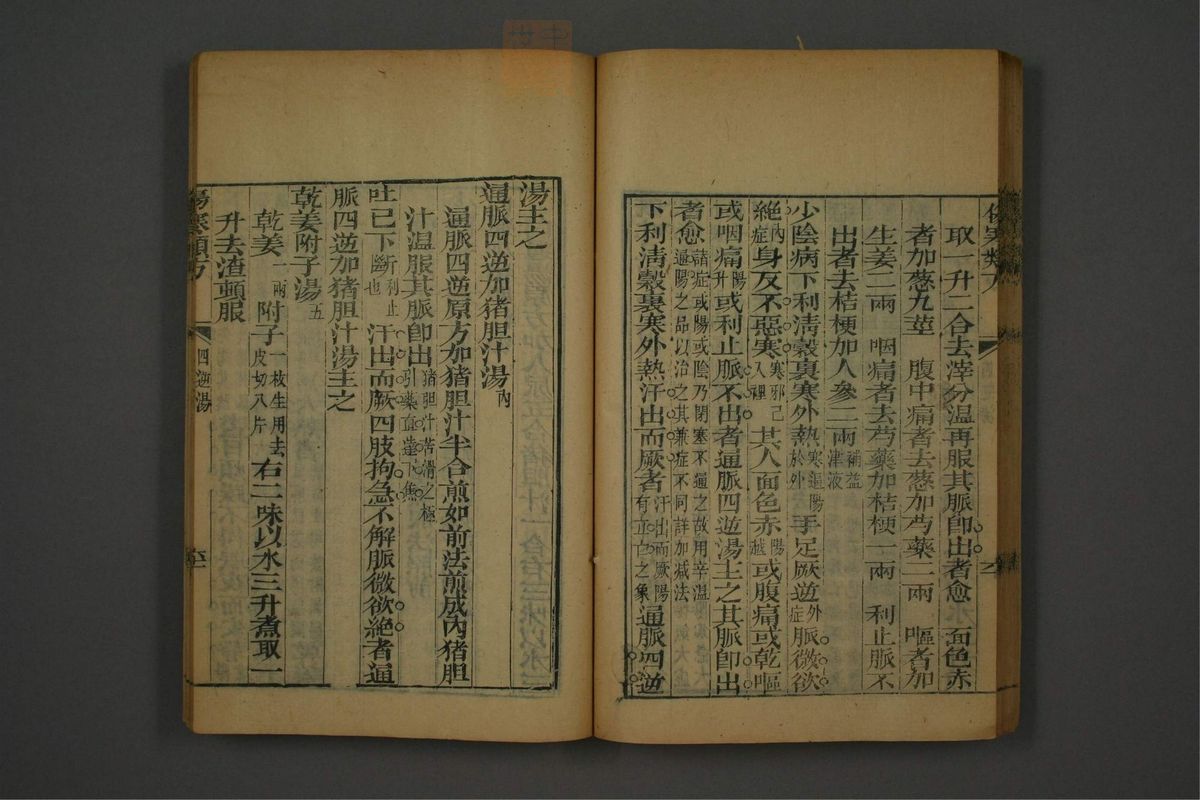 取一升二合去滓分温再服其脈卽出者愈 面色赤
者加葱九莖 腹中痛者去葱加芍藥二兩 嘔者加
生姜二兩 咽痛者去芍藥加桔梗一兩 利止脈不
出者去桔梗加人參二兩補益津液
少陰病下利淸穀裏寒外熱寒逼陽於外手足厥逆外症脈微欲
絕內症身反不惡寒寒邪已入裡其人面色赤陽越或腹痛或乾嘔
或咽痛陽升或利止脈不出者通脈四逆湯主之其脈卽出
者愈諸症或陽或陰乃閉塞不通之故用辛温通陽之品以治之其兼症不同詳加減法
下利淸穀裏寒外熱汗出而厥者汗出而厥陽有立亡之象通脈四逆
湯主之
通脈四逆加猪胆汁湯內
通脈四逆原方加猪胆汁半合煎如前法煎成內猪胆
汁温服其脈卽出猪胆汁苦滑之極引藥直達下焦
吐已下斷利止也汗出而厥四肢拘急不解脈微欲絕者通
脈四逆加猪胆汁湯主之
乾姜附子湯五
乾姜一兩 附子一枚生用去皮切八片右二味以水三升煮取一
升去渣頓服
傷寒類方
四逆湯